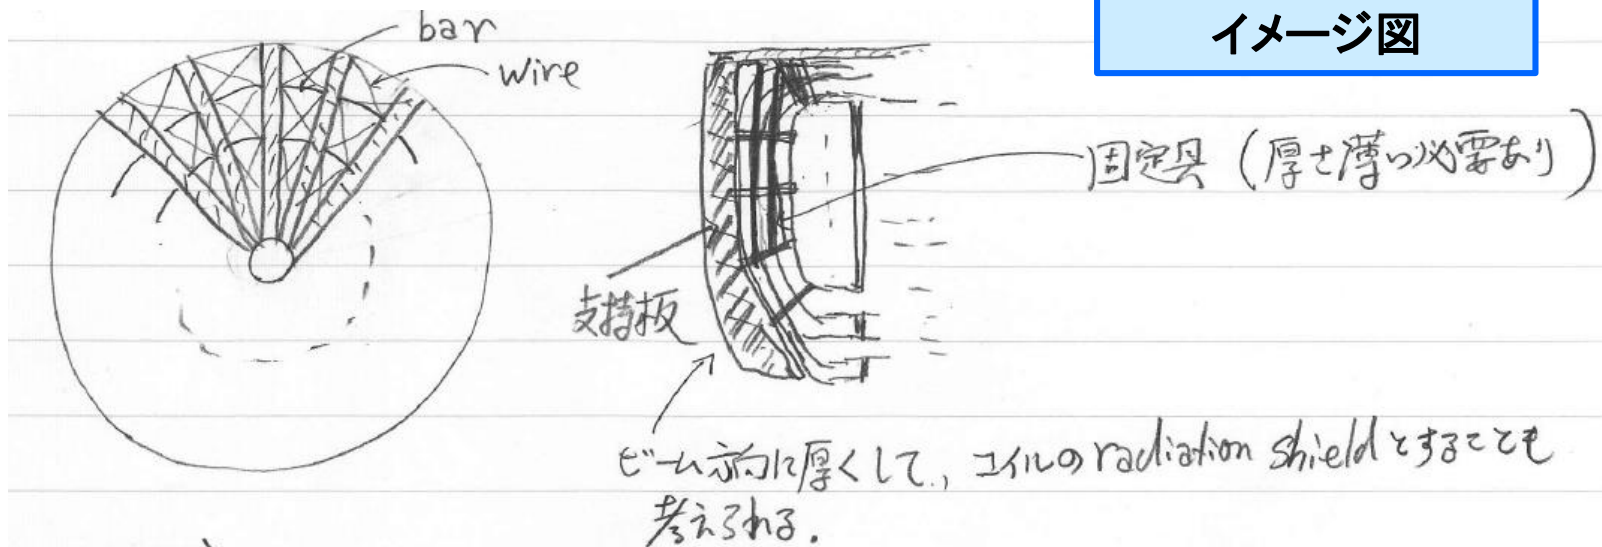 イメージ図
bar
wire
固定具（厚さ薄い必要あり）
支持板
ビーム方向に厚くして、コイルのradiation shieldとすることも
考えられる.